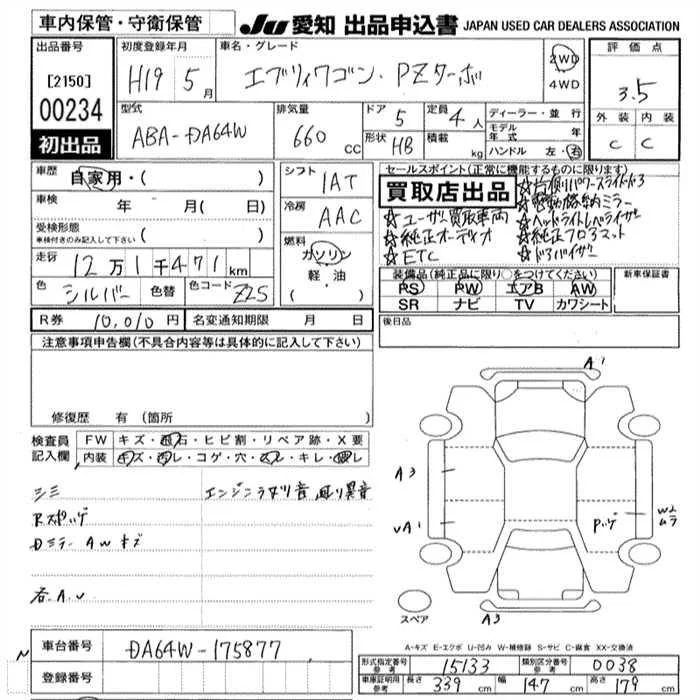 車内保管・守衛保管
JU 愛知 出品申込書 JAPAN USED CAR DEALERS ASSOCIATION
出品番号
[2150]
00234
初出品
初度登録年月
H19 5月
車名・グレード
エブリィワゴン・PZターボ
2WD
4WD
評価点
3.5
外装 内装
C C
型式
ABA-DA64W
排気量
660 cc
ドア 5
形状 HB
定員 4人
積載 kg
ディーラー・並行
モデル年式 年
ハンドル 左・右
車歴 自家用・( )
車検 年 月( 日)
受検形態
車検付きのみ記入して下さい ( )
走行 12万1千471km
色 シルバー 色替 色コード Z2S
シフト IAT
冷房 AAC
燃料 ガソリン
軽・油
・( )
セールスポイント(正常に機能するものに限ります)
買取店出品
☆右側パワースライドドア
☆電動格納ミラー
☆ユーザー買取車両
☆ヘッドライトレベライザー
☆純正オーディオ
☆純正フロアマット
☆ETC
☆ドアバイザー
装備品(純正品に限り○をつけてください)
PS PW エアB AW
SR ナビ TV カワシート
新車保証書
後日品
R券 10,010円 名変通知期限 月 日
注意事項申告欄(不具合内容等は具体的に記入して下さい)
修復歴 有(箇所 )
検査員記入欄
FW キズ・飛石・ヒビ割・リペア跡・X要
内装
シミ
エンジンラタツ音 回り異音
Rスポッゲ
Dミラー AWキズ
各A.U
A1
A3
UA1
Pッゲ
W2
ムラ
A3
スペア
A-キズ E-エクボ U-凹み W-補修跡 S-サビ C-腐食 XX-交換済
車台番号 DA64W-175877
登録番号
型式指定番号 参考 15133 類別区分番号 参考 0038
車庫証明用 参考 長さ 339cm 幅 147cm 高さ 179cm